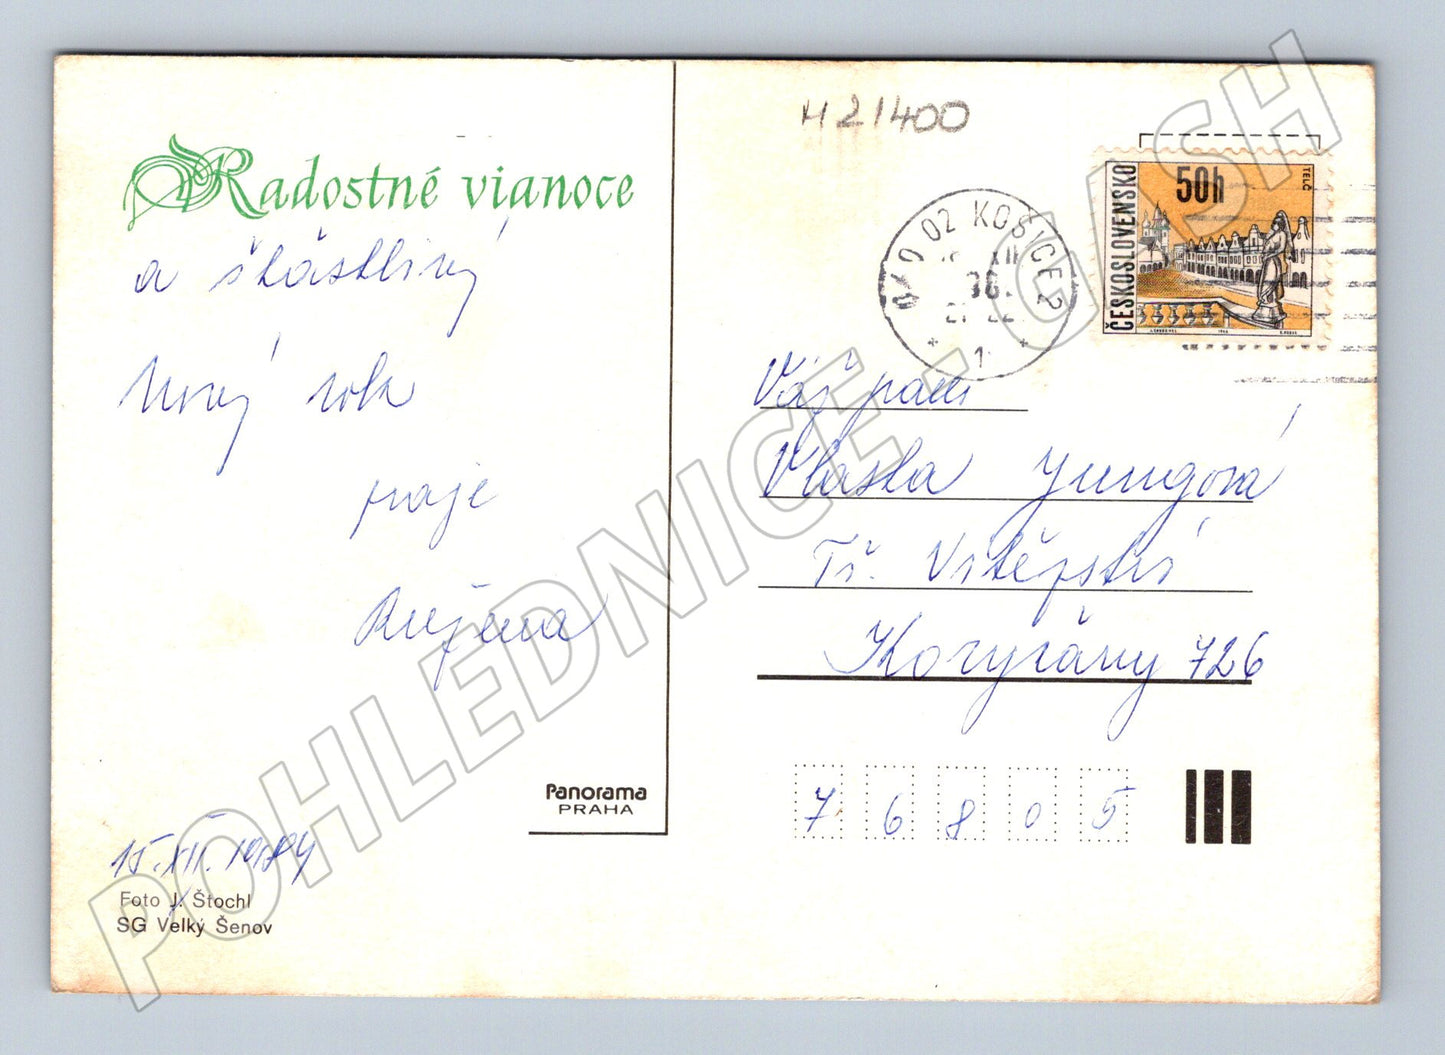 Radostné vianoce
a šťástlivý
Nový rok
praje
Ružena
15.XII.1984
Foto J. Štochl
SG Velký Šenov
Panorama
PRAHA
M21400
02 KOŠICE 2
XII
1
ČESKOSLOVENSKO
50h
TELČ
Váž pani
Vlasta Jungová
Tř. Vítězství
Koryčany 726
76805
POHLEDNICE.CASH